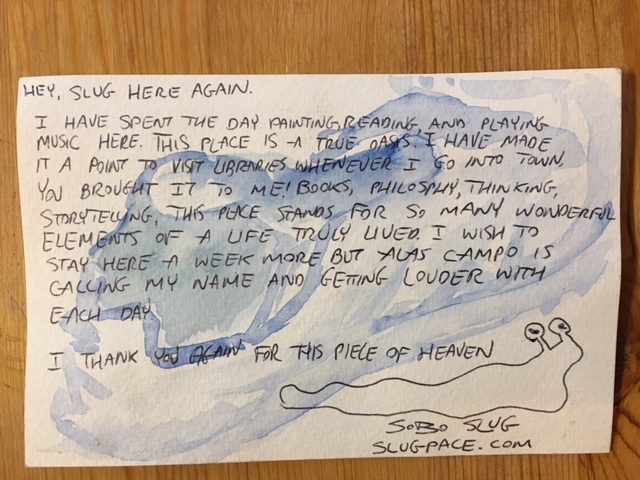 HEY, SLUG HERE AGAIN.
I HAVE SPENT THE DAY PAINTING, READING, AND PLAYING
MUSIC HERE. THIS PLACE IS A TRUE OASIS. I HAVE MADE
IT A POINT TO VISIT LIBRARIES WHENEVER I GO INTO TOWN.
YOU BROUGHT IT TO ME! BOOKS, PHILOSPHY, THINKING,
STORYTELLING, THIS PLACE STANDS FOR SO MANY WONDERFUL
ELEMENTS OF A LIFE TRULY LIVED. I WISH TO
STAY HERE A WEEK MORE BUT ALAS CAMPO IS
CALLING MY NAME AND GETTING LOUDER WITH
EACH DAY
I THANK YOU AGAIN FOR THIS PIECE OF HEAVEN
SOBO SLUG
SLUGPACE.COM